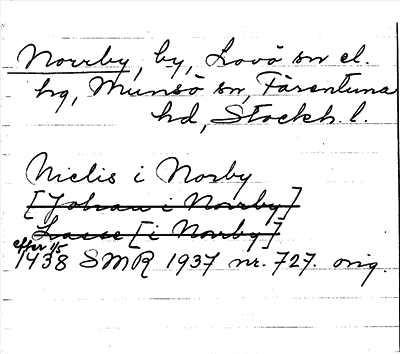 Norrby, by, Lovö sn el.
hg, Munsö sn, Färentuna
hd, Stockh. l.
Niclis i Norby
[Johan i Norrby]
Lasse [i Norrby]
efter 1/5
1438 SMR 1937 nr. 727. orig.